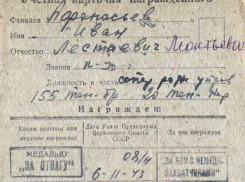 Учетная карточка награжденного
Фамилия Афонасьев
Имя Иван
Отчество Лестаевич Леонтьевич
Звание
Должность и часть
155 тан. бр. 20 тан.
Награжден:
Каким орденом или медалью награжден
Дата Указа Президиума Верховного Совета СССР
За что награжден
МЕДАЛЬЮ „ЗА ОТВАГУ"
08/н
6-11-43
ЗА БОИ С НЕМЕЦК. ЗАХВАТЧИКАМИ